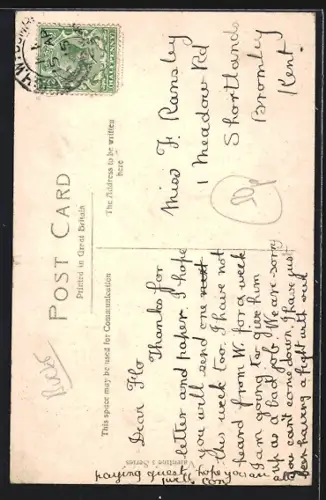 POST CARD
Printed in Great Britain
This space may be used for Communication
The Address to be written
here
Valentine's Series
Dear Flo
Thanks for
letter and paper. I hope
you will send one next
this week too. I have not
heard from W. for a week
I am going to give him
up as a bad job. We are sorry
you can't come down, I have just
been having a fight with our
paying guest, hope you are
well
Miss F. Ransley
1 Meadow Rd
Shortlands
Bromley
Kent.